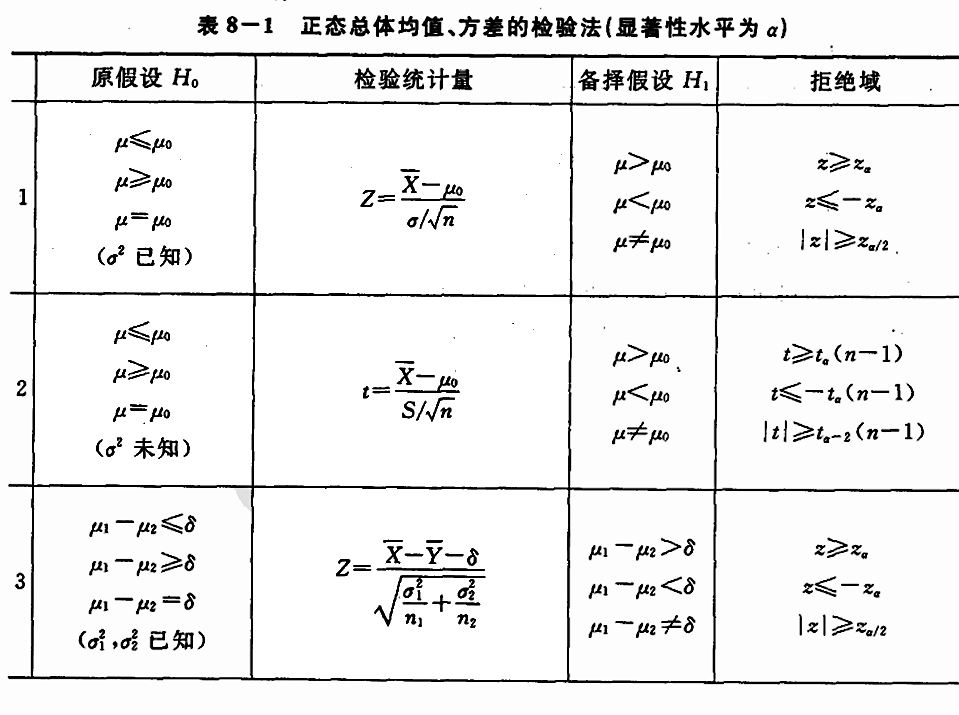 表 8—1 正态总体均值、方差的检验法(显著性水平为 α)
原假设 H₀ 检验统计量 备择假设 H₁ 拒绝域
1
μ≤μ₀
μ≥μ₀
μ=μ₀
(σ² 已知)
Z=(X̄−μ₀)/(σ/√n)
μ>μ₀
μ<μ₀
μ≠μ₀
z≥z_α
z≤−z_α
|z|≥z_{α/2}
2
μ≤μ₀
μ≥μ₀
μ=μ₀
(σ² 未知)
t=(X̄−μ₀)/(S/√n)
μ>μ₀
μ<μ₀
μ≠μ₀
t≥t_α(n−1)
t≤−t_α(n−1)
|t|≥t_{α−2}(n−1)
3
μ₁−μ₂≤δ
μ₁−μ₂≥δ
μ₁−μ₂=δ
(σ₁²,σ₂² 已知)
Z=(X̄−Ȳ−δ)/√(σ₁²/n₁+σ₂²/n₂)
μ₁−μ₂>δ
μ₁−μ₂<δ
μ₁−μ₂≠δ
z≥z_α
z≤−z_α
|z|≥z_{α/2}